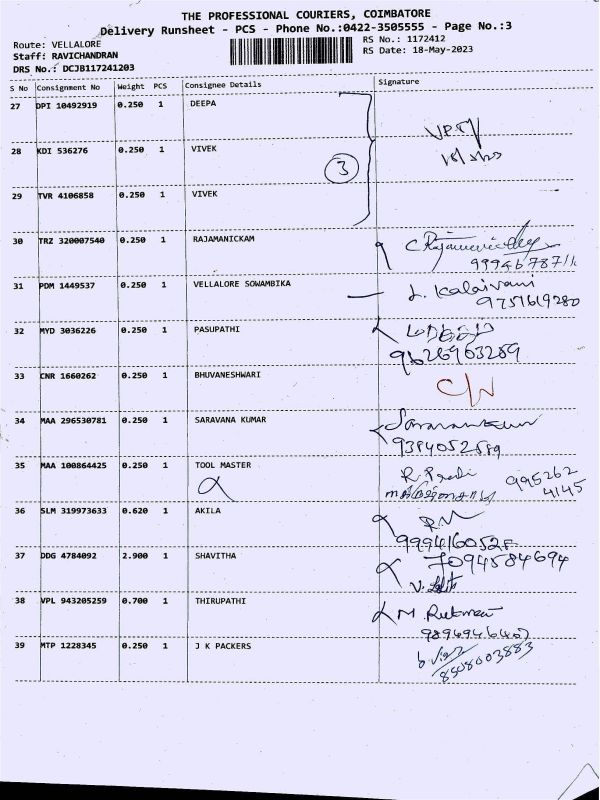 THE PROFESSIONAL COURIERS, COIMBATORE
Delivery Runsheet - PCS - Phone No.:0422-3505555 - Page No.:3
Route: VELLALORE
RS No.: 1172412
Staff: RAVICHANDRAN
RS Date: 18-May-2023
DRS No.: DCJB117241203
S No Consignment No Weight PCS Consignee Details Signature
27 DPI 10492919 0.250 1 DEEPA
28 KDI 536276 0.250 1 VIVEK
3
29 TVR 4106858 0.250 1 VIVEK
30 TRZ 320007540 0.250 1 RAJAMANICKAM
31 PDM 1449537 0.250 1 VELLALORE SOWAMBIKA L. Kalaivani
9751619280
32 MYD 3036226 0.250 1 PASUPATHI
9626963289
33 CNR 1660262 0.250 1 BHUVANESHWARI
34 MAA 296530781 0.250 1 SARAVANA KUMAR
35 MAA 100864425 0.250 1 TOOL MASTER
995262
4145
36 SLM 319973633 0.620 1 AKILA
37 DDG 4784092 2.900 1 SHAVITHA 7094584694
38 VPL 943205259 0.700 1 THIRUPATHI
39 MTP 1228345 0.250 1 J K PACKERS
8508003883